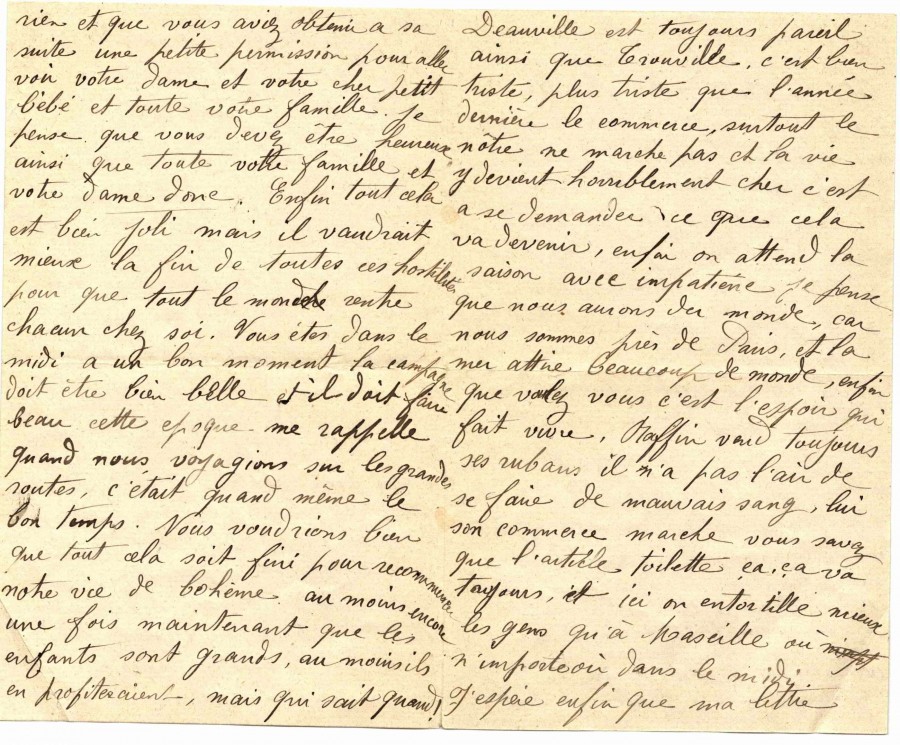 rien et que vous aviez obtenu a sa
suite une petite permission pour aller
voir votre dame et votre cher petit
bébé et toute votre famille. Je
pense que vous devez etre heureux
ainsi que toute votre famille et
votre dame donc. Enfin tout cela
est bien joli mais il vaudrait
mieux la fin de toutes ces hostilités
pour que tout le monde rentre
chacun chez soi. Vous êtes dans le
midi a un bon moment la campagne
doit être bien belle s'il doit faire
beau cette epoque me rappelle
quand nous voyagions sur les grandes
routes, c'était quand même le
bon temps. Nous voudrions bien
que tout cela soit fini pour recommencer
notre vie de bohème au moins encore
une fois maintenant que les
enfants sont grands, au moins ils
en profiteraient, mais qui sait quand!
Deauville est toujours pareil
ainsi que Trouville, c'est bien
triste, plus triste que l'année
dernière le commerce, surtout le
nôtre ne marche pas et la vie
y devient horriblement cher c'est
a se demander ce que cela
va devenir, enfin on attend la
saison avec impatience je pense
que nous aurons du monde, car
nous sommes près de Paris, et la
mer attire beaucoup de monde, enfin
que voulez vous c'est l'espoir qui
fait vivre. Raffin vend toujours
ses rubans il n'a pas l'air de
se faire de mauvais sang, lui
son commerce marche vous savez
que l'article toilette ça, ça va
toujours, et ici on entortille mieux
les gens qu'à Maseille ou
n'importe où dans le midi.
J'espère enfin que ma lettre